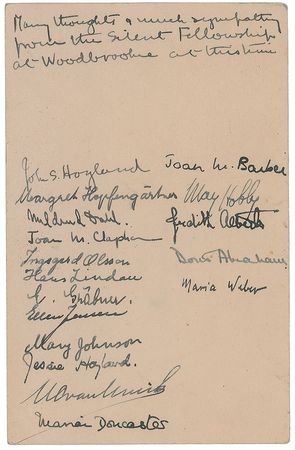 Many thoughts & much sympathy
from the Silent Fellowship
at Woodbrooke at this time
John S. Hoyland
Joan M. Barber
Margret Hopfengärtner
May Hobby
Mildred Dahl.
Judith Alberts
Joan M. Clapham
Ingegerd Olsson
Doris Abraham
Hans Lindau
Maria Weber
E. Gräbner.
Ellen Jensen
Mary Johnson
Jessie Hoyland.
Marie Doncaster